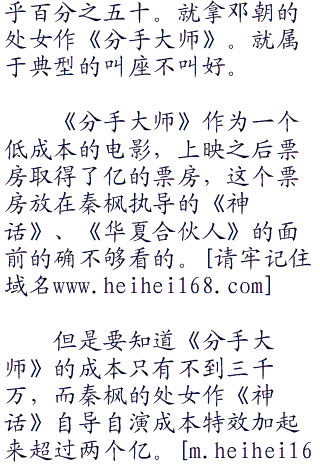 乎百分之五十。就拿邓朝的
处女作《分手大师》。就属
于典型的叫座不叫好。
《分手大师》作为一个
低成本的电影，上映之后票
房取得了亿的票房，这个票
房放在秦枫执导的《神
话》、《华夏合伙人》的面
前的确不够看的。[请牢记住
域名www.heihei168.com]
但是要知道《分手大
师》的成本只有不到三千
万，而秦枫的处女作《神
话》自导自演成本特效加起
来超过两个亿。[m.heihei16